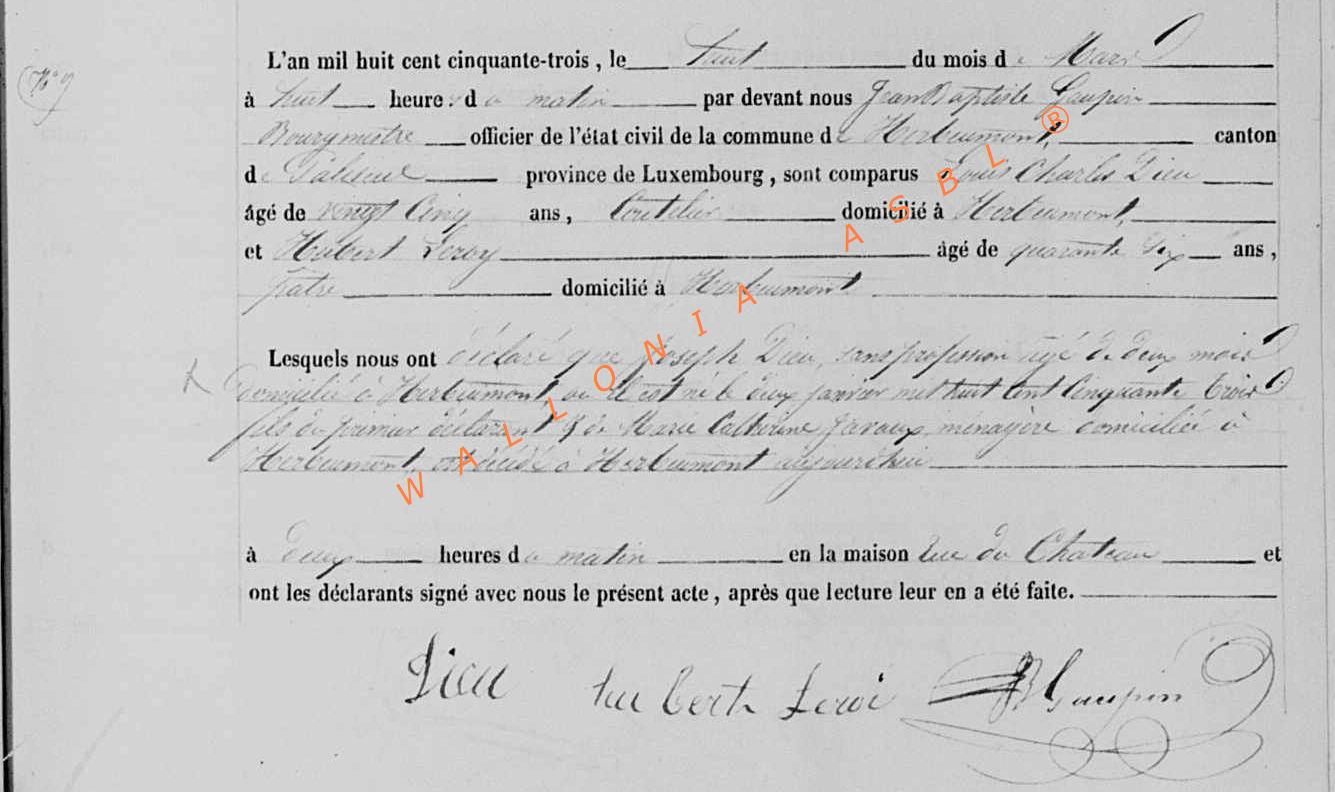 N° 9
L'an mil huit cent cinquante-trois, le huit du mois de Mars
à huit heures du matin par devant nous Jean Baptiste Gaupin
Bourgmestre officier de l'état civil de la commune de Herbeumont, canton
de Paliseul province de Luxembourg, sont comparus Louis Charles Dieu
âgé de vingt Cinq ans, Coutelier domicilié à Herbeumont,
et Hubert Leroy âgé de quarante Six ans,
patre domicilié à Herbeumont
Lesquels nous ont déclaré que Joseph Dieu, sans profession agé de deux mois
domicilié à Herbeumont, où il est né le deux janvier mil huit cent Cinquante trois
fils du premier déclarant & de Marie Catherine Javaux, ménagère domiciliée à
Herbeumont, est décédé à Herbeumont aujourd'hui
à deux heures du matin en la maison rue du Chateau et
ont les déclarants signé avec nous le présent acte, après que lecture leur en a été faite.
Dieu hubert Leroi JB Gaupin
WALLONIA ASBL ®